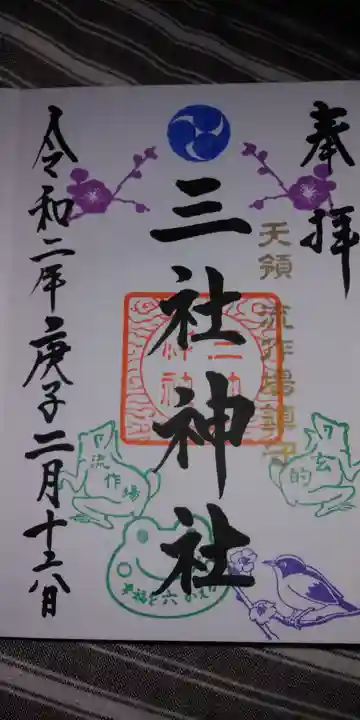 奉拝
天領 流作場鎮守
三社神社
三社神社
令和二年庚子二月十六日
流作場
的